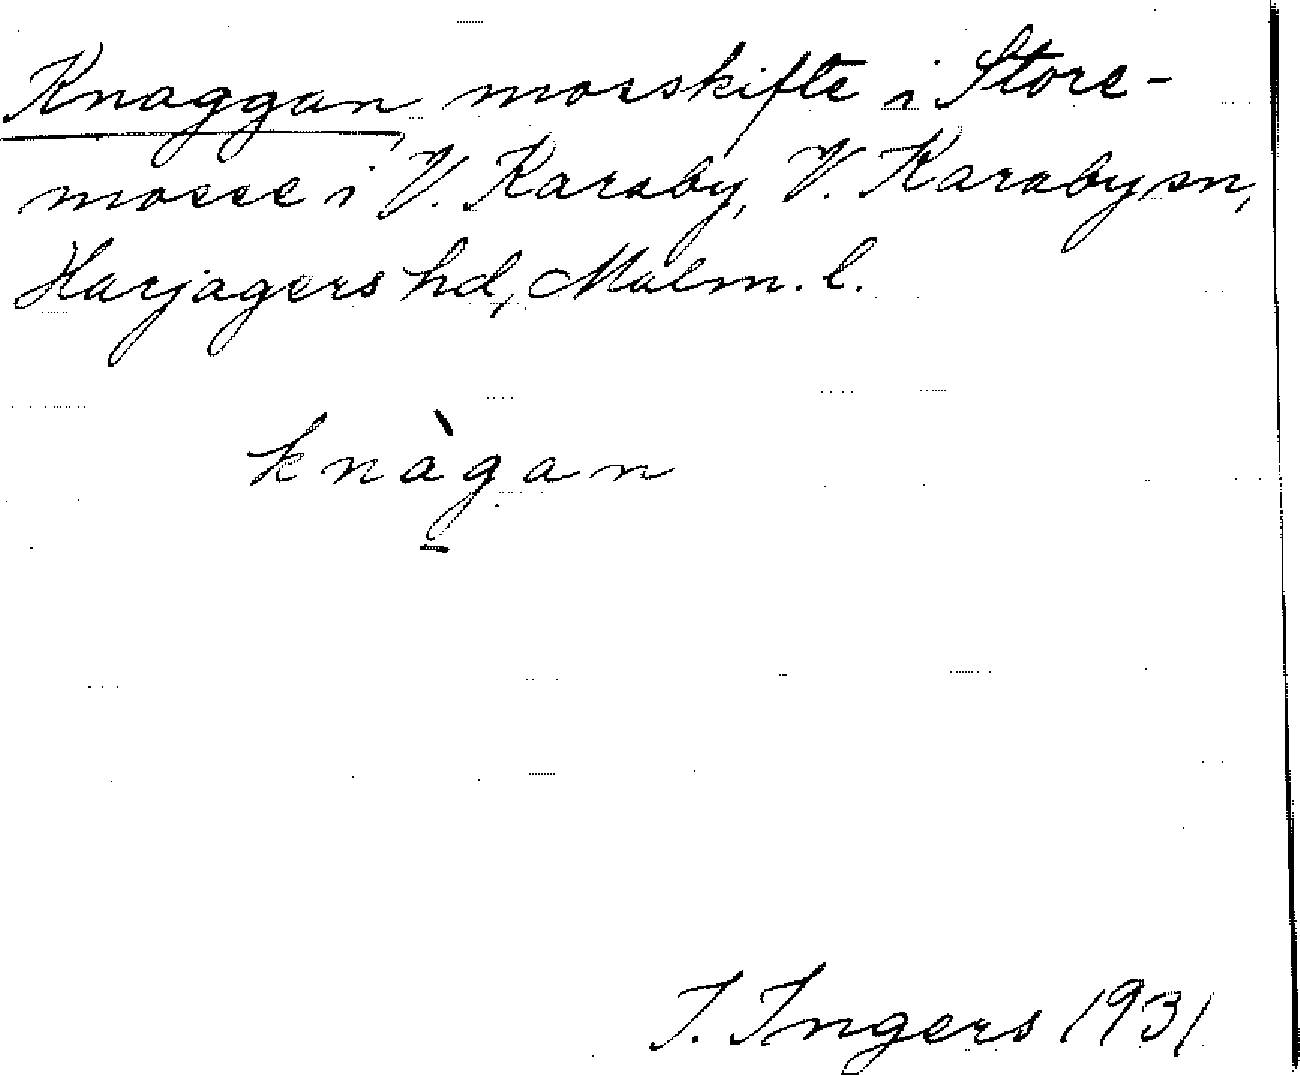 Knaggan, mosskifte i Store-
mosse i V. Karaby, V. Karaby sn,
Harjagers hd, Malm. l.
knàgan
I. Ingers 1931